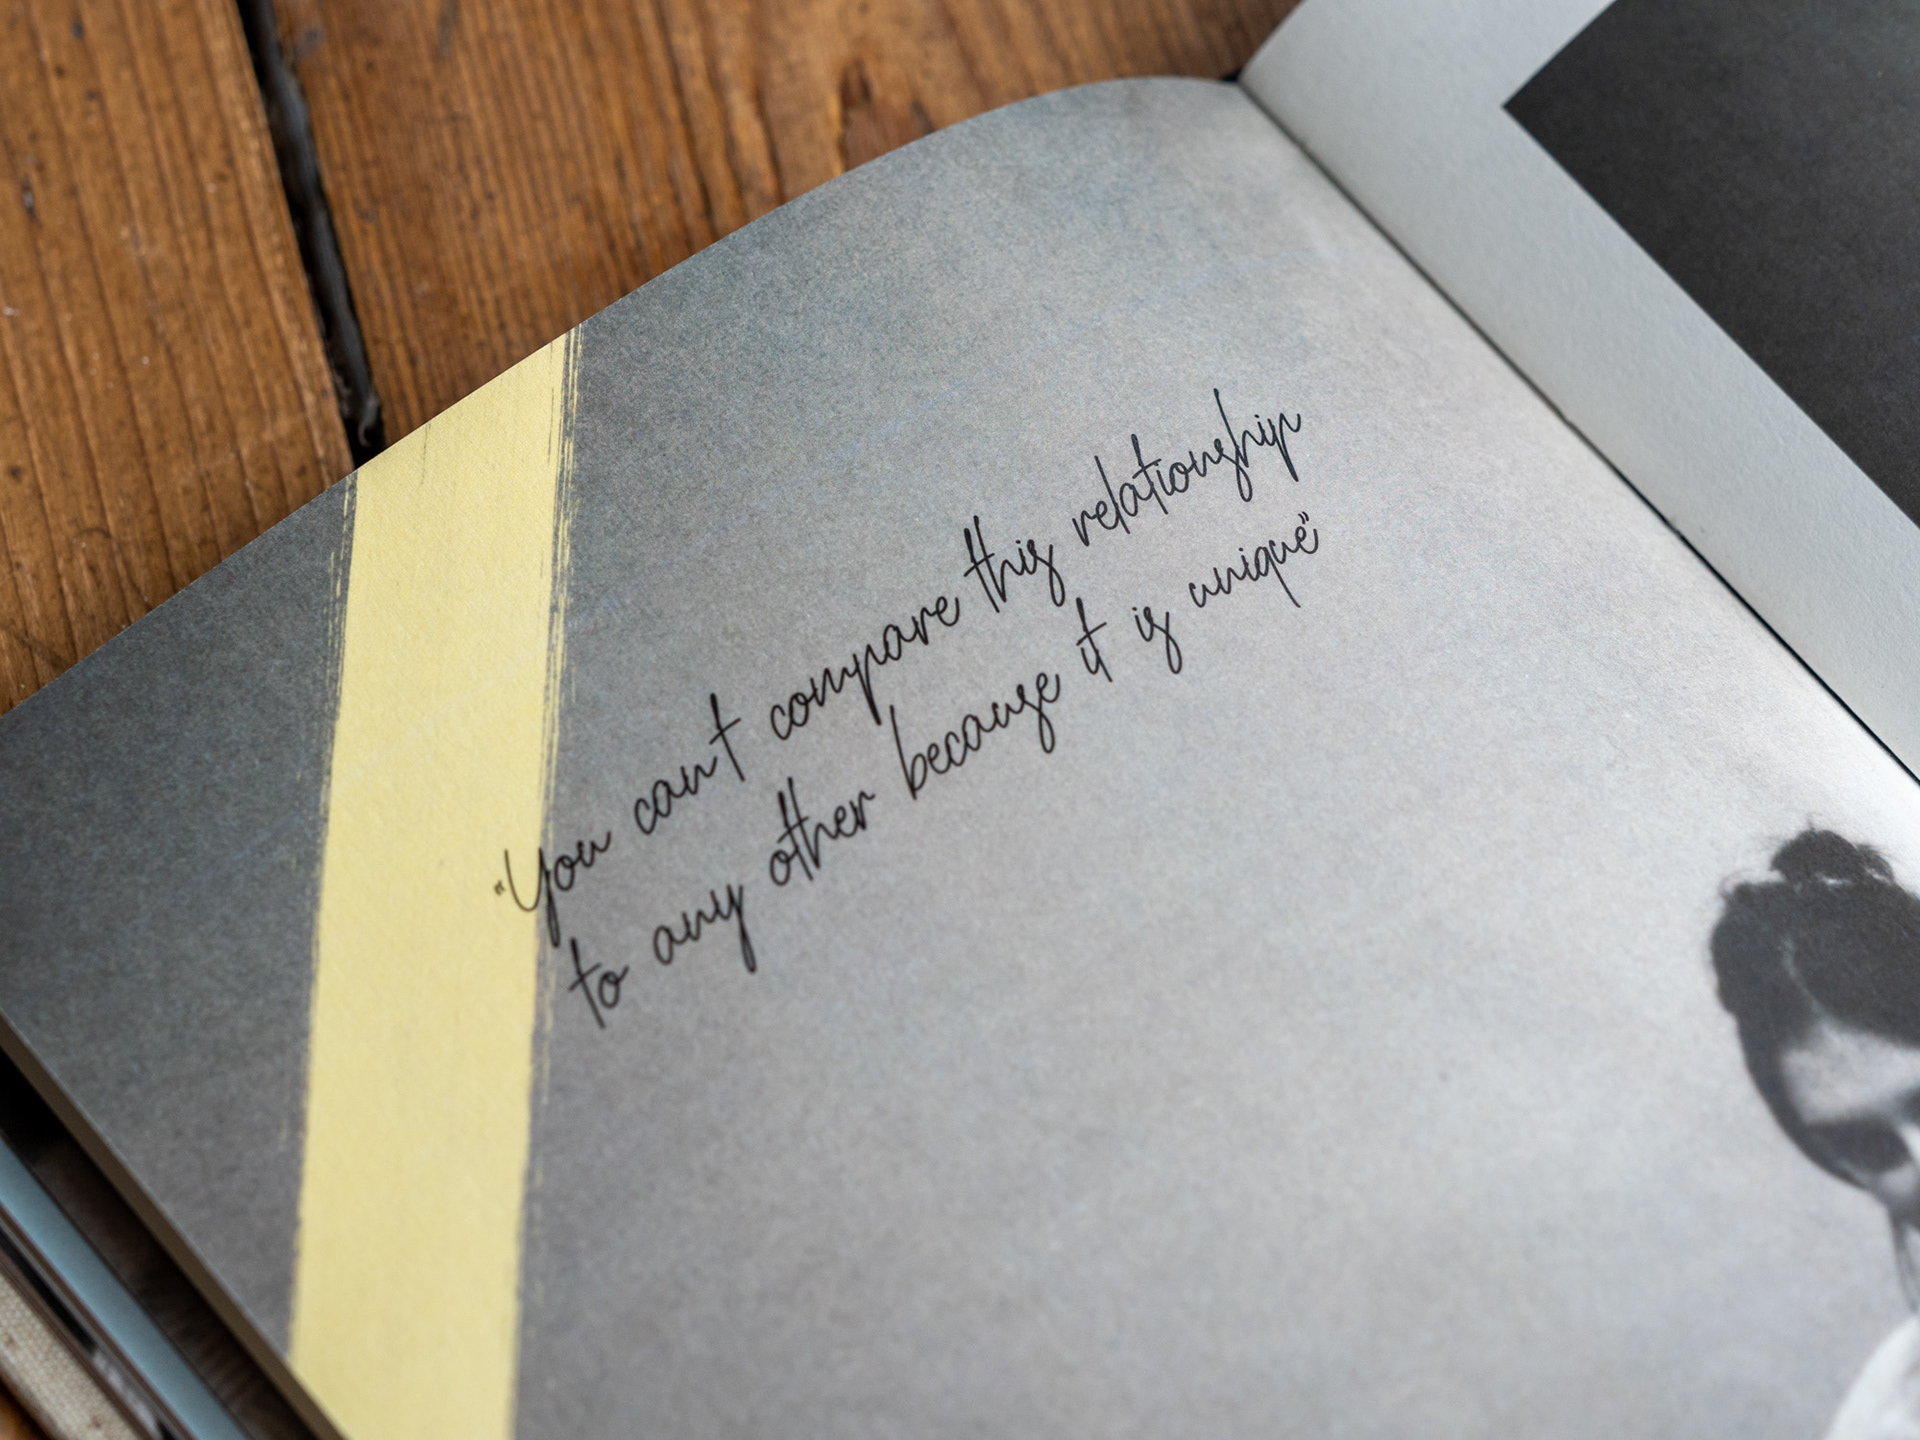 "You can't compare this relationship
to any other because it is unique"